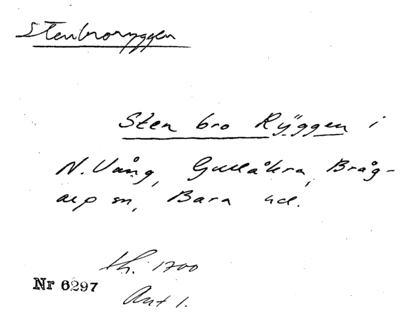 Stenbroryggen
Sten bro Rÿggen i
N. Vång, Gullåkra, Bråg-
arp sn, Bara hd.
Lh. 1700
Nr 6297
Ant 1.